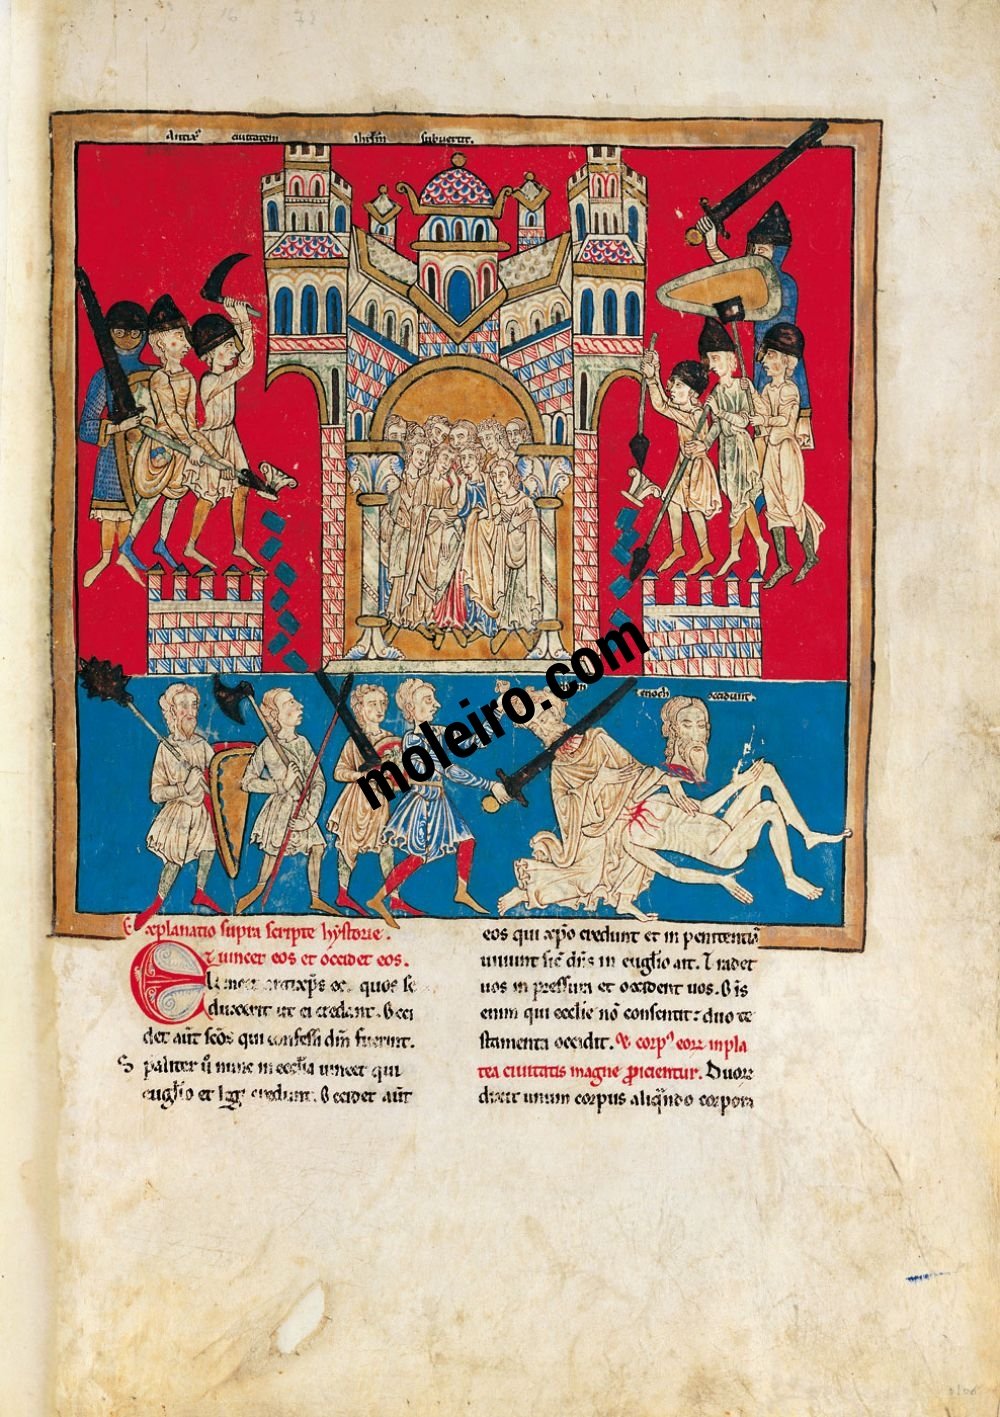 Antixp̃s ciuitatem ihr̃lm subuertit.
enoch occidunt.
moleiro.com
Explanatio supra scripte hystorie.
Et uincet eos et occidet eos.
quos se
duxerit ut ei credant. Occi
det aũt sc̃os qui confessi dñm fuerint.
Spaliter ũ nunc in ecclia uincet qui
euglĩo et legi credunt. Occidet aũt
eos qui xp̃o credunt et in penitentia
uiuunt sic̃ dñs in euglĩo ait. Tradet
uos in pressura et occident uos. Om̃s
enim qui ecclie nõ consentit: duo te
stamenta occidit. Et corpᵖ eoꝝ in pla
tea ciuitatis magne ꝓicientur. Duoꝝ
dixit unum corpus aliqñdo corpora